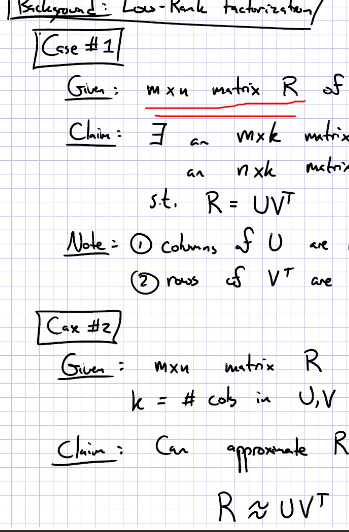 Background: Low-Rank Factorization
Case #1
Given: mxn matrix R of
Claim: ∃ an mxk matrix
an nxk matrix
s.t. R = UVᵀ
Note: ① columns of U are
② rows of Vᵀ are
Case #2
Given: mxn matrix R
k = # cols in U,V
Claim: Can approximate R
R ≈ UVᵀ